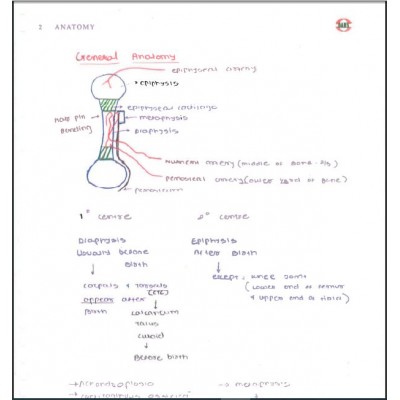 2 ANATOMY
General Anatomy
epiphyseal artery
epiphysis
epiphyseal cartilage
metaphysis
Hair pin
bending
Diaphysis
nutrient artery (middle of Bone
periosteal artery (outer of Bone)
periosteum
1° centre
2° centre
Diaphysis
Usually before
Birth
Epiphysis
After Birth
except: knee joint
(Lower end of femur
& upper end of tibia)
carpals & tarsals
(ETC)
appear after
Birth
calcaneum
Talus
cuboid
Before birth
→ Achondroplasia